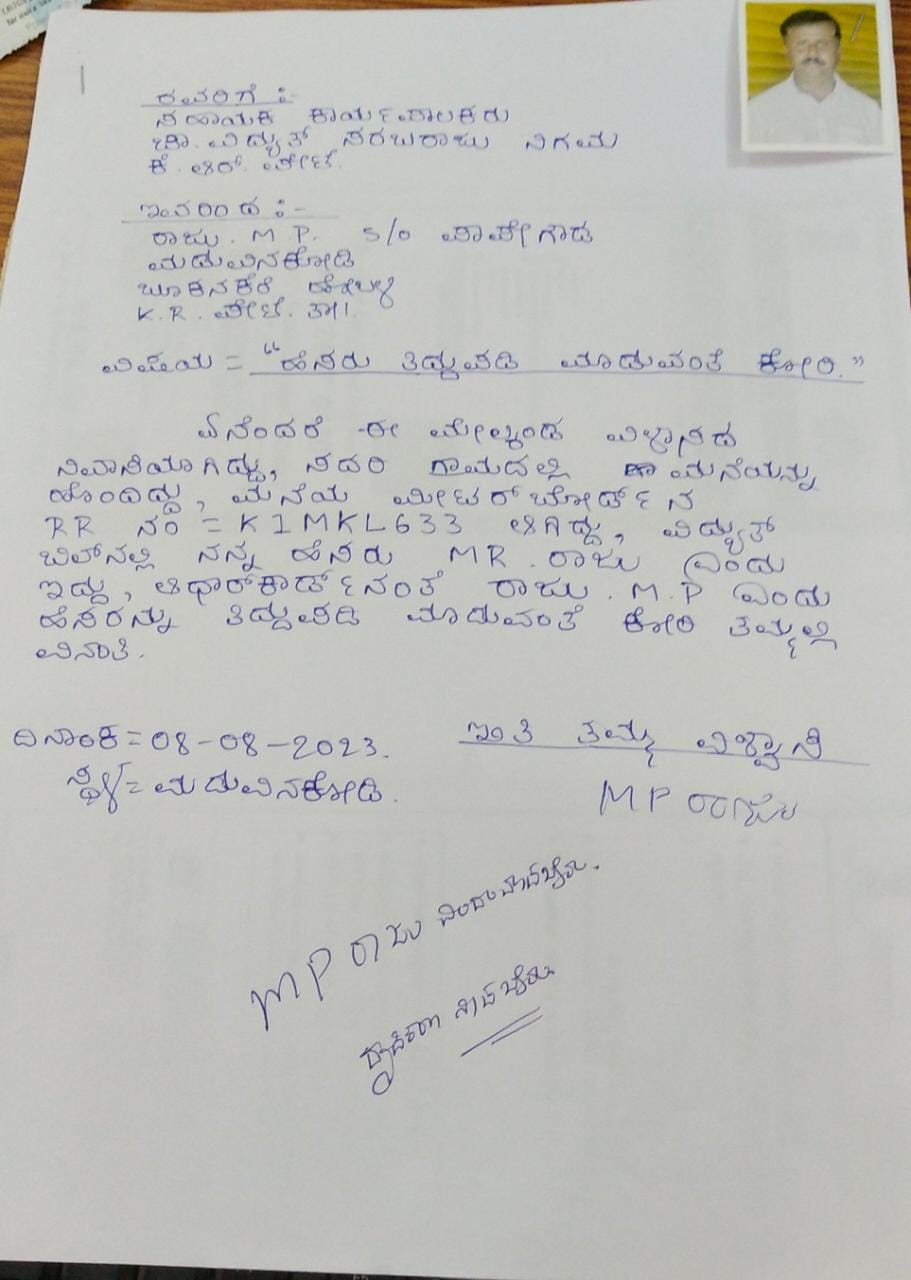 ರವರಿಗೆ :-
ಸಹಾಯಕ ಕಾರ್ಯಪಾಲಕರು
ಚಾ. ವಿದ್ಯುತ್ ಸರಬರಾಜು ನಿಗಮ
ಕೆ. ಆರ್. ಪೇಟೆ.
ಇಂವರಿಂದ :-
ರಾಜು. M P. S/o ಪಾಪೇಗೌಡ
ಮಡುವಿನಕೋಡಿ
ಬೂಕನಕೆರೆ ಹೋಬಳಿ
K. R. ಪೇಟೆ. ತಾ।.
ವಿಷಯ = "ಹೆಸರು ತಿದ್ದುಪಡಿ ಮಾಡುವಂತೆ ಕೋರಿ."
ಏನೆಂದರೆ ಈ ಮೇಲ್ಕಂಡ ವಿಳಾಸದ
ನಿವಾಸಿಯಾಗಿದ್ದು, ಸದರಿ ಗ್ರಾಮದಲ್ಲಿ ಮನೆಯನ್ನು
ಹೊಂದಿದ್ದು, ಮನೆಯ ಮೀಟರ್ ಬೋರ್ಡ್ ನ
RR ನಂ = K1MKL633 ಆಗಿದ್ದು, ವಿದ್ಯುತ್
ಬಿಲ್‌ನಲ್ಲಿ ನನ್ನ ಹೆಸರು MR. ರಾಜು ಎಂದು
ಇದ್ದು, ಆಧಾರ್‌ಕಾರ್ಡ್ ನಂತೆ ರಾಜು. M.P ಎಂದು
ಹೆಸರನ್ನು ತಿದ್ದುಪಡಿ ಮಾಡುವಂತೆ ಕೋರಿ ತಮ್ಮಲ್ಲಿ
ವಿನಂತಿ.
ದಿನಾಂಕ = 08-08-2023.
ಸ್ಥಳ = ಮಡುವಿನಕೋಡಿ.
ಇಂತಿ ತಮ್ಮ ವಿಶ್ವಾಸಿ
M P ರಾಜು
M P ರಾಜು